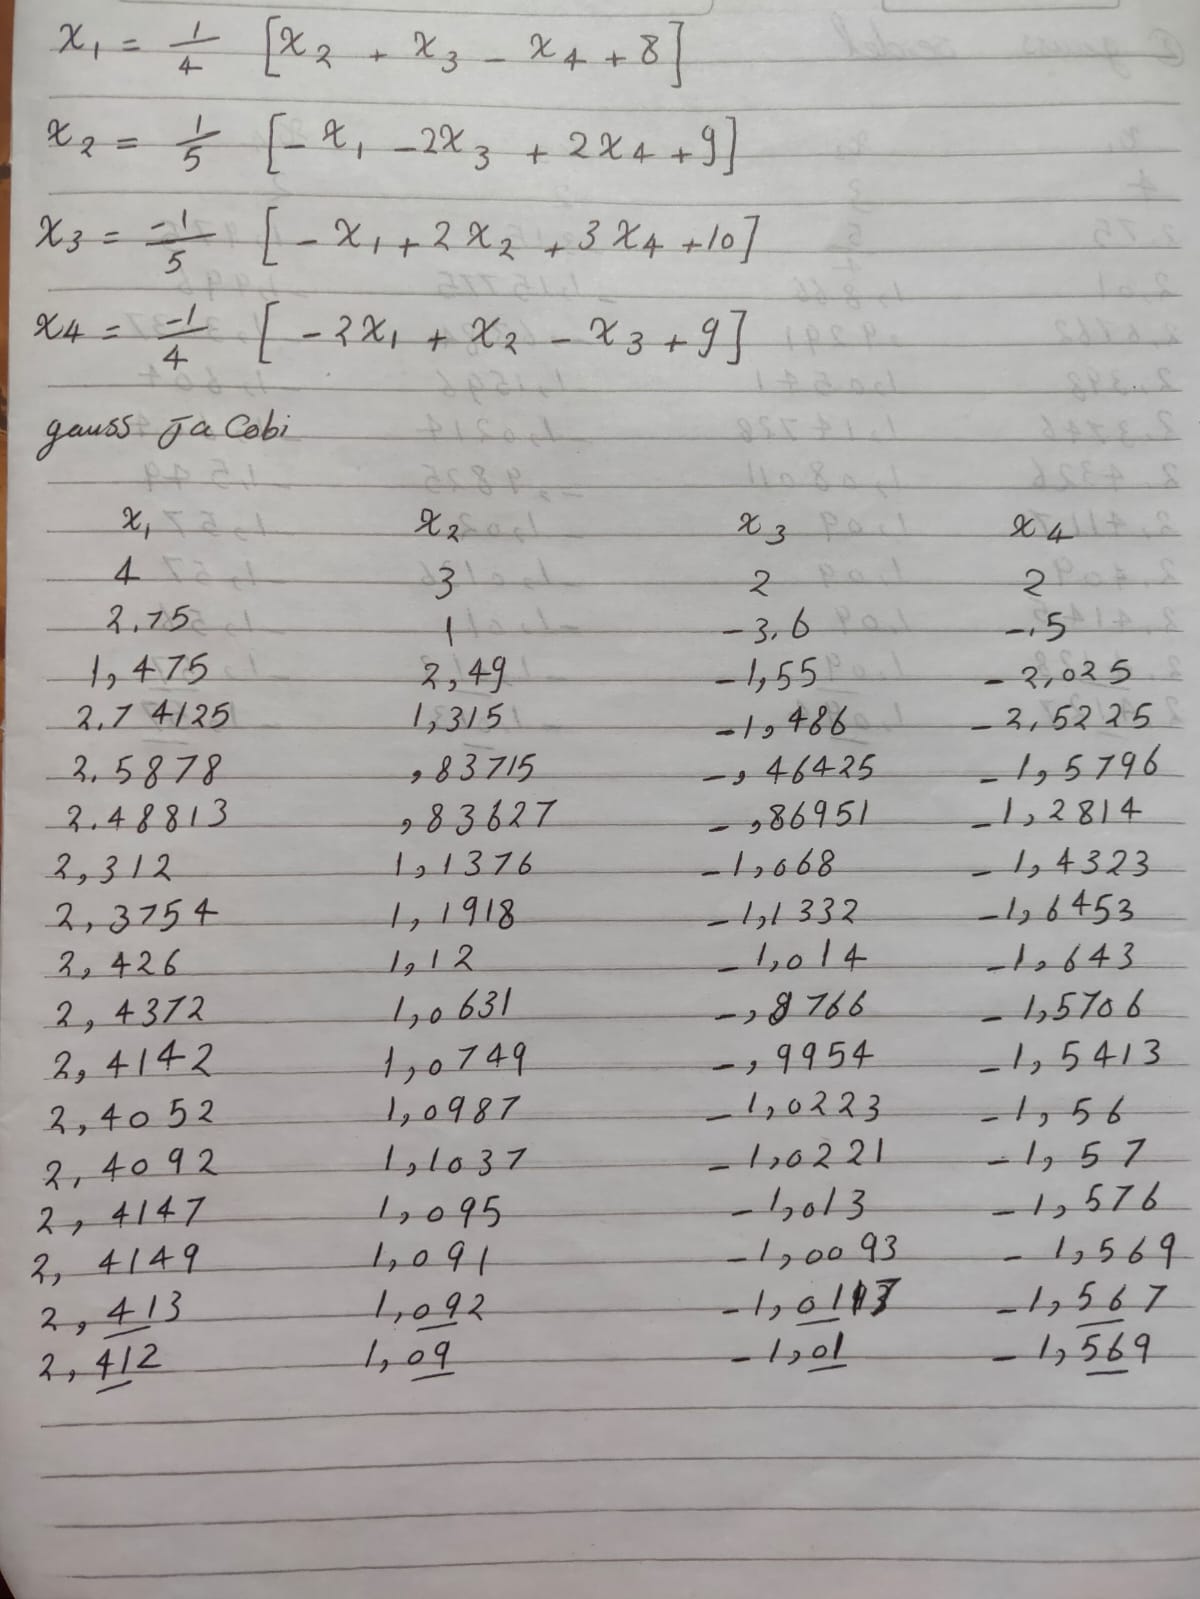 x₁ = 1/4 [x₂ + x₃ - x₄ + 8]
x₂ = 1/5 [-x₁ - 2x₃ + 2x₄ + 9]
x₃ = -1/5 [-x₁ + 2x₂ + 3x₄ + 10]
x₄ = -1/4 [-2x₁ + x₂ - x₃ + 9]
gauss Ja Cobi
x₁ x₂ x₃ x₄
4 3 2 2
2.75 1 -3.6 -.5
1,475 2,49 -1,55 -2,025
2.74125 1,315 -1,486 -2,5225
2.5878 ,83715 -,46425 -1,5796
2.48813 ,83627 -,86951 -1,2814
2,312 1,1376 -1,068 -1,4323
2,3754 1,1918 -1,1332 -1,6453
2,426 1,12 -1,014 -1,643
2,4372 1,0631 -,8766 -1,5706
2,4142 1,0749 -,9954 -1,5413
2,4052 1,0987 -1,0223 -1,56
2,4092 1,1037 -1,0221 -1,57
2,4147 1,095 -1,013 -1,576
2,4149 1,091 -1,0093 -1,569
2,413 1,092 -1,567
2,412 1,09 -1,01 -1,569